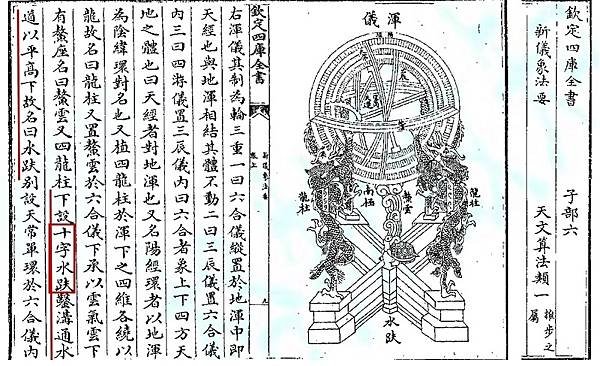 欽定四庫全書
子部六
新儀象法要
天文算法類一
推步之屬
渾儀
龍柱
鰲雲
南極
龍柱
水趺
欽定四庫全書
卷上
右渾儀其制為輪三重一曰六合儀縱置於地渾中即
天經也與地渾相結其體不動二曰三辰儀置六合儀
內三曰四游儀置三辰儀內曰六合者象上下四方天
地之體也曰天經者對地渾也又名陽經環者以地渾
為陰緯環對名也又植四龍柱於渾下之四維各繞以
龍故名曰龍柱又置鰲雲於六合儀下承以雲氣雲下
有鰲座名曰鰲雲又四龍柱下設十字水趺鑿溝通水
道以平高下故名曰水趺別設天常單環於六合儀內